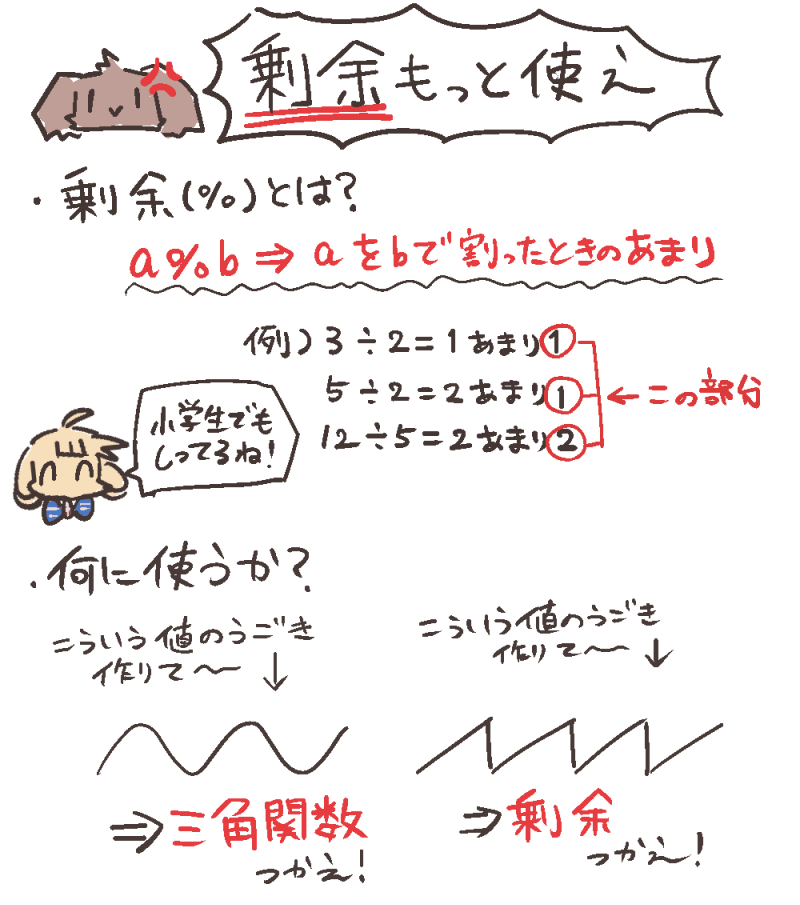 剰余もっと使え
・剰余(%)とは?
a%b⇒aをbで割ったときのあまり
例)3÷2=1あまり1
5÷2=2あまり1
←この部分
12÷5=2あまり2
小学生でも
しってるね!
・何に使うか?
こういう値のうごき
作りて〜
↓
こういう値のうごき
作りて〜
↓
⇒三角関数
つかえ!
⇒剰余
つかえ!